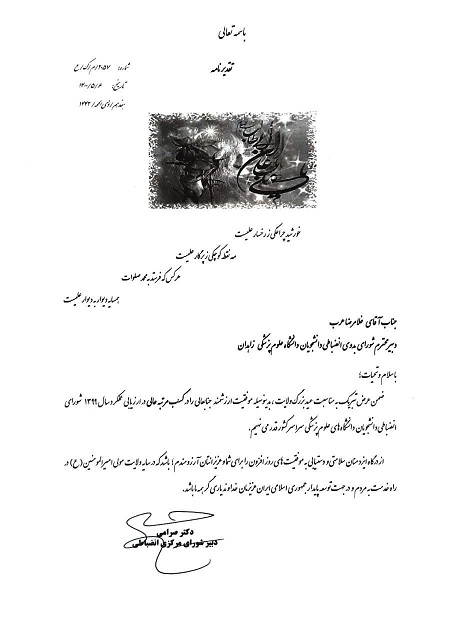 باسمه تعالی
تقدیرنامه
شماره: ۲۰۵۷/م/ک/ع
تاریخ: ۱۴۰۰/۵/۶
هفدهم ذی‌الحجه/۱۴۴۲
خورشید چراغکی ز رخسار علیست
مه نقطه کوچکی ز پرگار علیست
هر کس که فرستد به محمد صلوات
همسایه دیوار به دیوار علیست
جناب آقای غلامرضا عرب
دبیر محترم شورای بدوی انضباطی دانشجویان دانشگاه علوم پزشکی زاهدان
با سلام و تحیات؛
ضمن عرض تبریک به مناسبت عید بزرگ ولایت، بدینوسیله موفقیت ارزشمند جنابعالی را در کسب مرتبه عالی در ارزیابی عملکرد سال ۱۳۹۹ شورای
انضباطی دانشجویان دانشگاه‌های علوم پزشکی سراسر کشور قدر می نهیم.
از درگاه ایزد منان سلامتی و دستیابی به موفقیت های روز افزون را برای شما و عزیزانتان آرزومندم؛ باشد که در سایه ولایت مولی امیرالمومنین (ع) در
راه خدمت به مردم و در جهت توسعه پایدار جمهوری اسلامی ایران عزیزمان خداوند یاریگر همه ما باشد.
دکتر صرامی
دبیر شورای مرکزی انضباطی